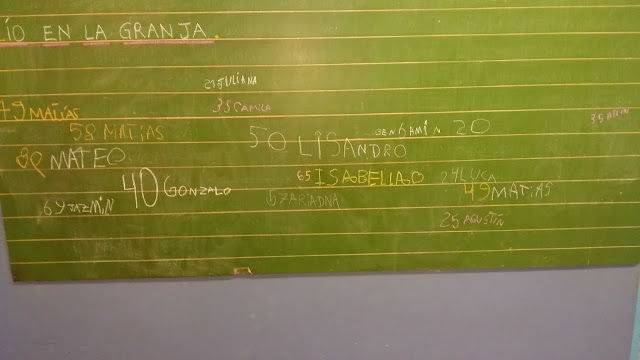 ÍO EN LA GRANJA.
25 JULIANA
35 CAMILA
49 MATÍAS
58 MATÍAS
50 LISANDRO
BENHAMIN 20
MATEO
65 ISABELLA
24 LUCA
40 GONZALO
49 MATÍAS
69 JAZMÍN
57 ARIADNA
25 AGUSTÍN